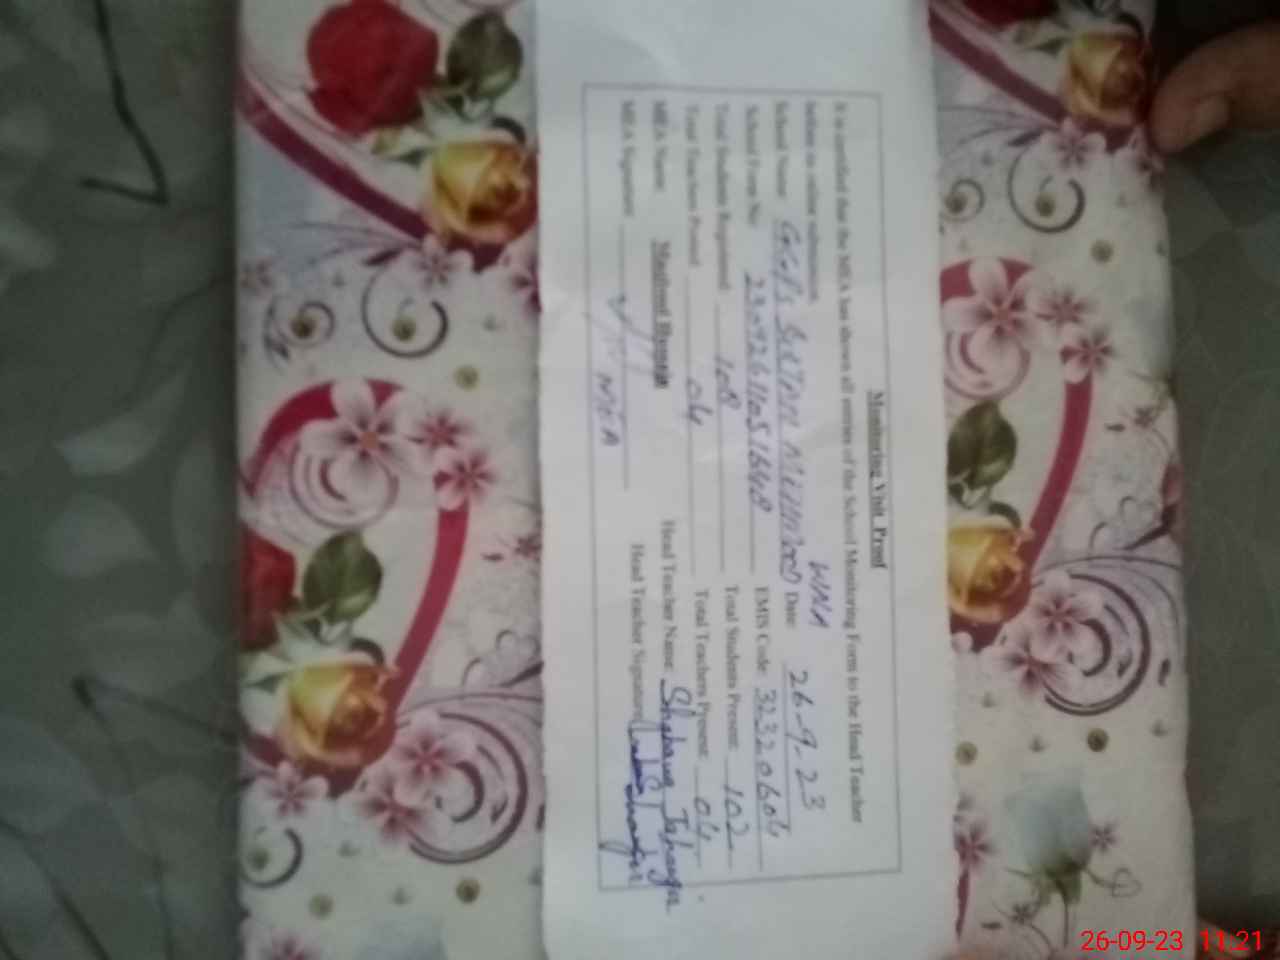 Monitoring Visit Proof
It is certified that the MEA has shown all entries of the School Monitoring Form to the Head Teacher
before its online submission.
School Name: GGPS Date: 26-9-23
School Form No: EMIS Code: 32320604
Total Students Registered: 108 Total Students Present: 102
Total Teachers Posted: 04 Total Teachers Present: 04
MEA Name: Head Teacher Name:
MEA Signature: MEA Head Teacher Signature:
26-09-23 11:21